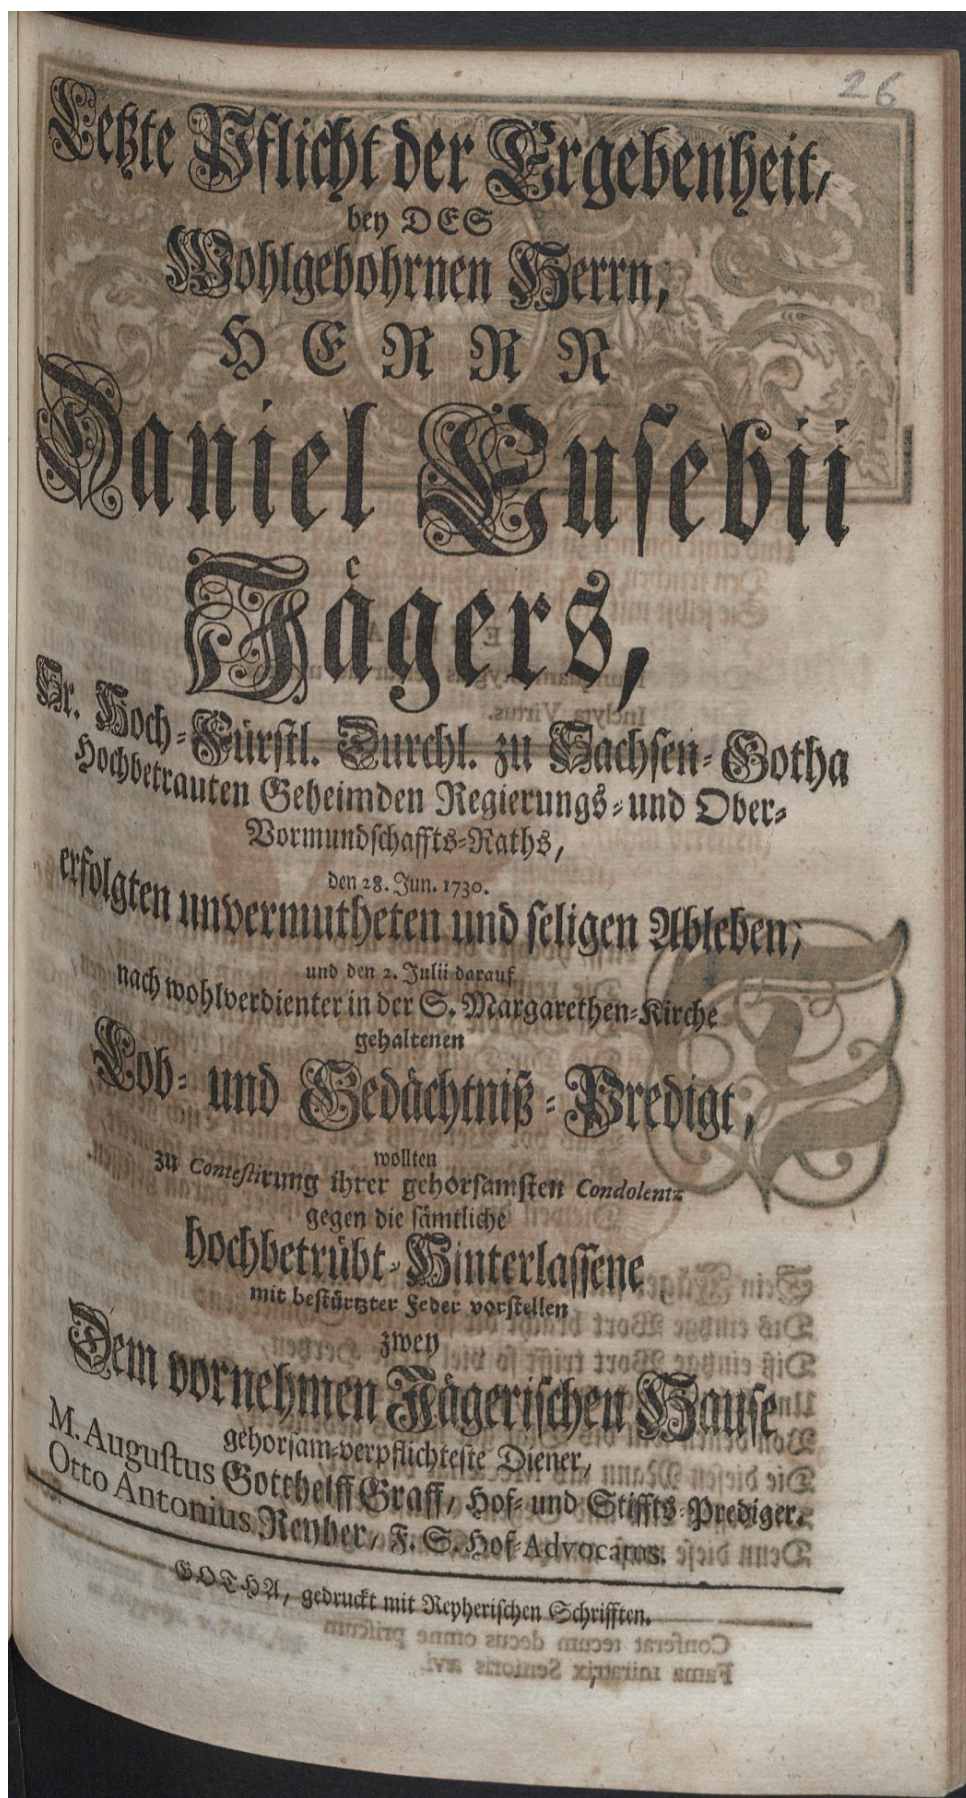 26
Letzte Pflicht der Ergebenheit,
bey DES
Wohlgebohrnen Herrn,
HERRN
Daniel Eusebii
Jaͤgers,
Sr. Hoch-Fürstl. Durchl. zu Sachsen-Gotha
Hochbetrauten Geheimden Regierungs- und Ober-
Vormundschaffts-Raths,
den 28. Jun. 1730.
erfolgten unvermutheten und seligen Ableben,
und den 2. Julii darauf
nach wohlverdienter in der S. Margarethen-Kirche
gehaltenen
Lob- und Gedächtniß-Predigt,
wollten
zu Contestirung ihrer gehorsamsten Condolentz
gegen die sämtliche
hochbetrübt-Hinterlassene
mit bestürtzter Feder vorstellen
zwey
Dem vornehmen Jägerischen Hause
gehorsam-verpflichteste Diener,
M. Augustus Gotthelff Graff, Hof- und Stiffts-Prediger.
Otto Antonius Reyher, F. S. Hof-Advocatus.
GOTHA, gedruckt mit Reyherischen Schrifften.